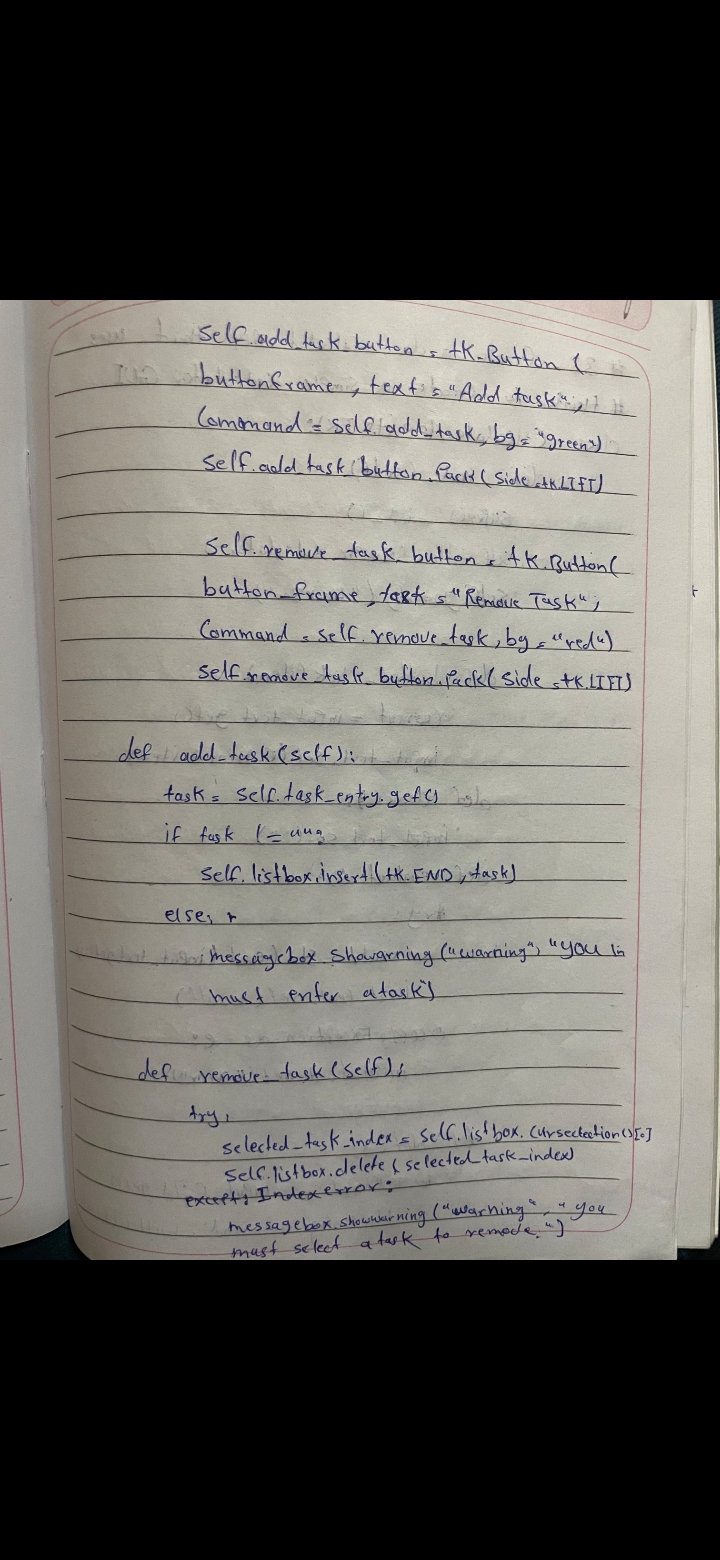 self.add_task_button = tk.Button (
buttonframe, text = "Add task",
Command = self.add_task, bg = "green")
self.add task button.Pack (side = tk.LIFT)
self.remove_task_button = tk.Button(
button_frame, task = "Remove Task",
Command = self.remove_task, bg = "red")
self.remove_task_button.Pack( side = tk.LIFT)
def add_task (self):
task = self.task_entry.get()
if task != "":
self.listbox.insert (tk.END, task)
else:
messagebox showarning ("warning", "you
must enter a task")
def remove_task (self):
try:
selected_task_index = self.listbox.curselection()[0]
self.listbox.delete (selected_task_index)
except: Index error:
messagebox.showwarning ("warning", "you
must select a task to remode.")